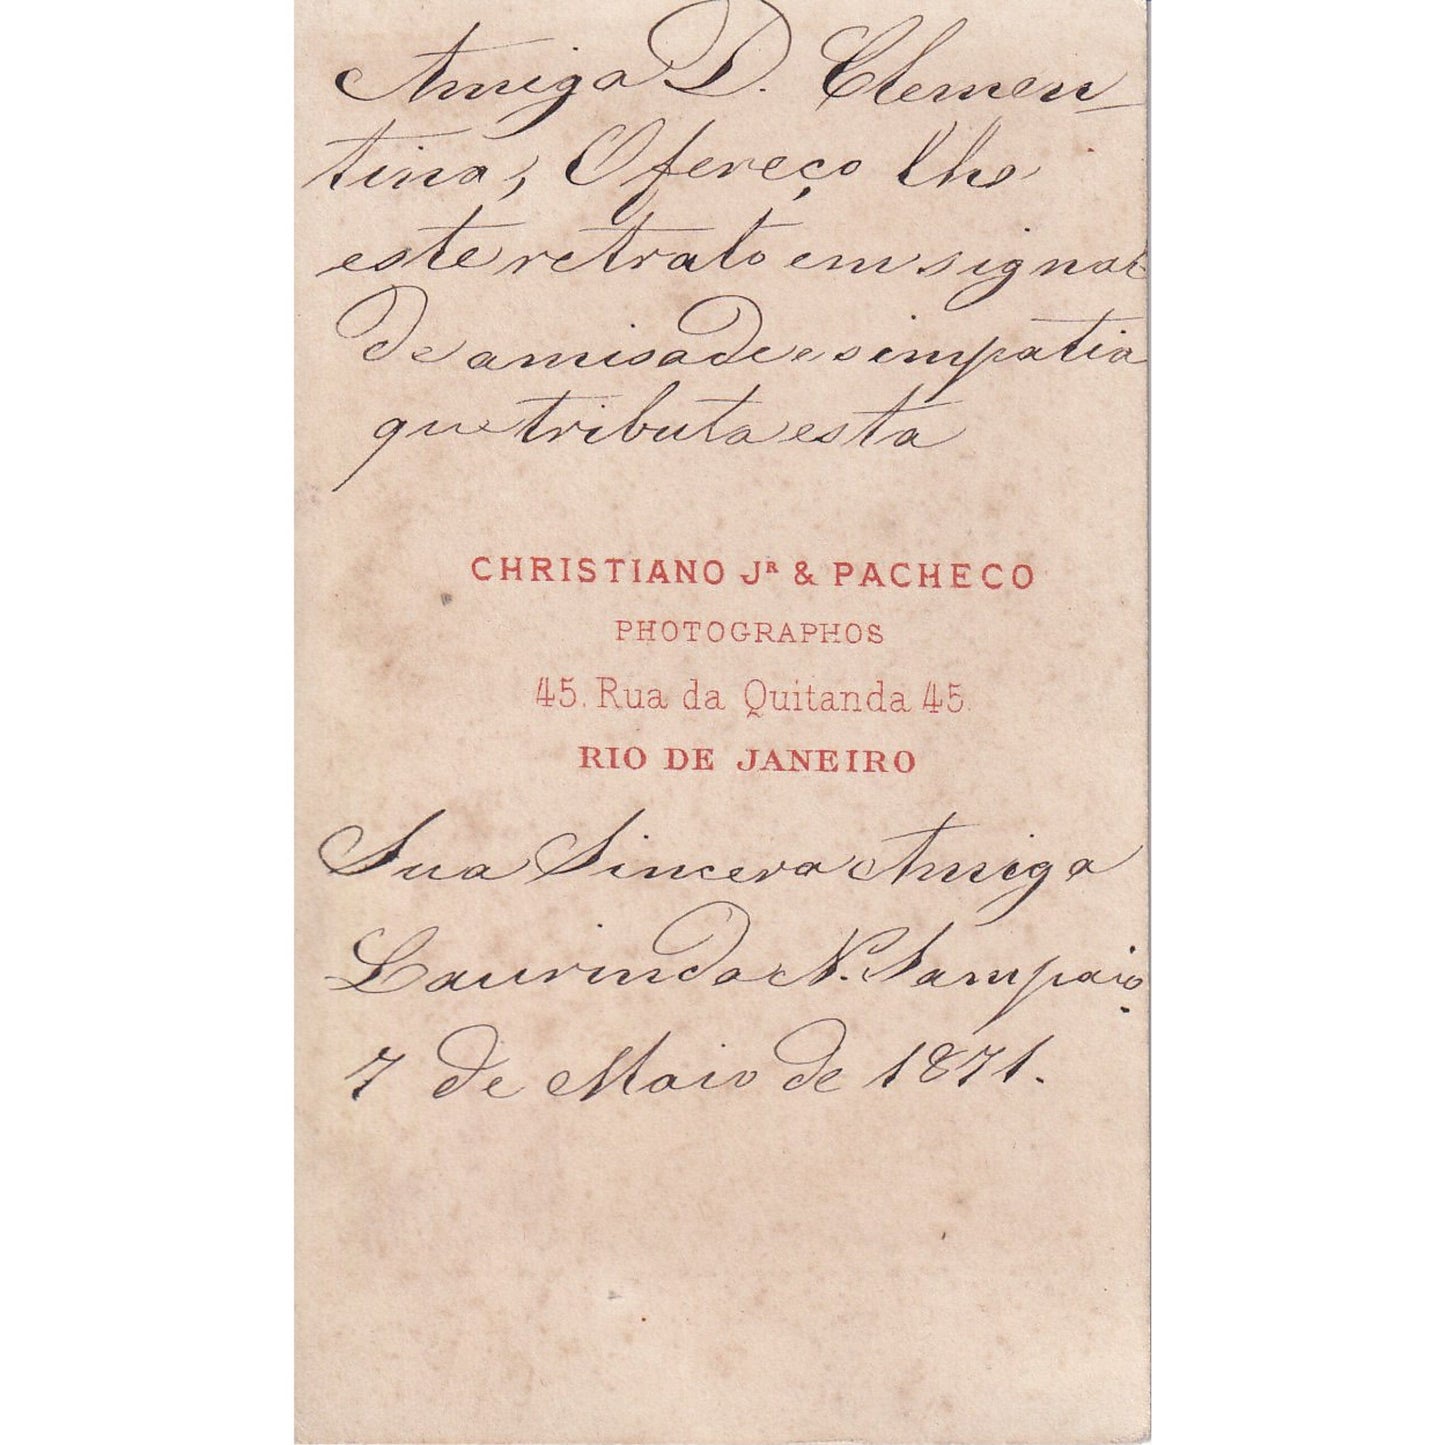 Amiga D. Clemen-
tina, Ofereço lhe
este retrato em signal
de amisade e simpatia
que tributa esta
CHRISTIANO Jᴿ & PACHECO
PHOTOGRAPHOS
45. Rua da Quitanda 45.
RIO DE JANEIRO
Sua Sincera Amiga
Laurinda N. Sampaio.
7 de Maio de 1871.